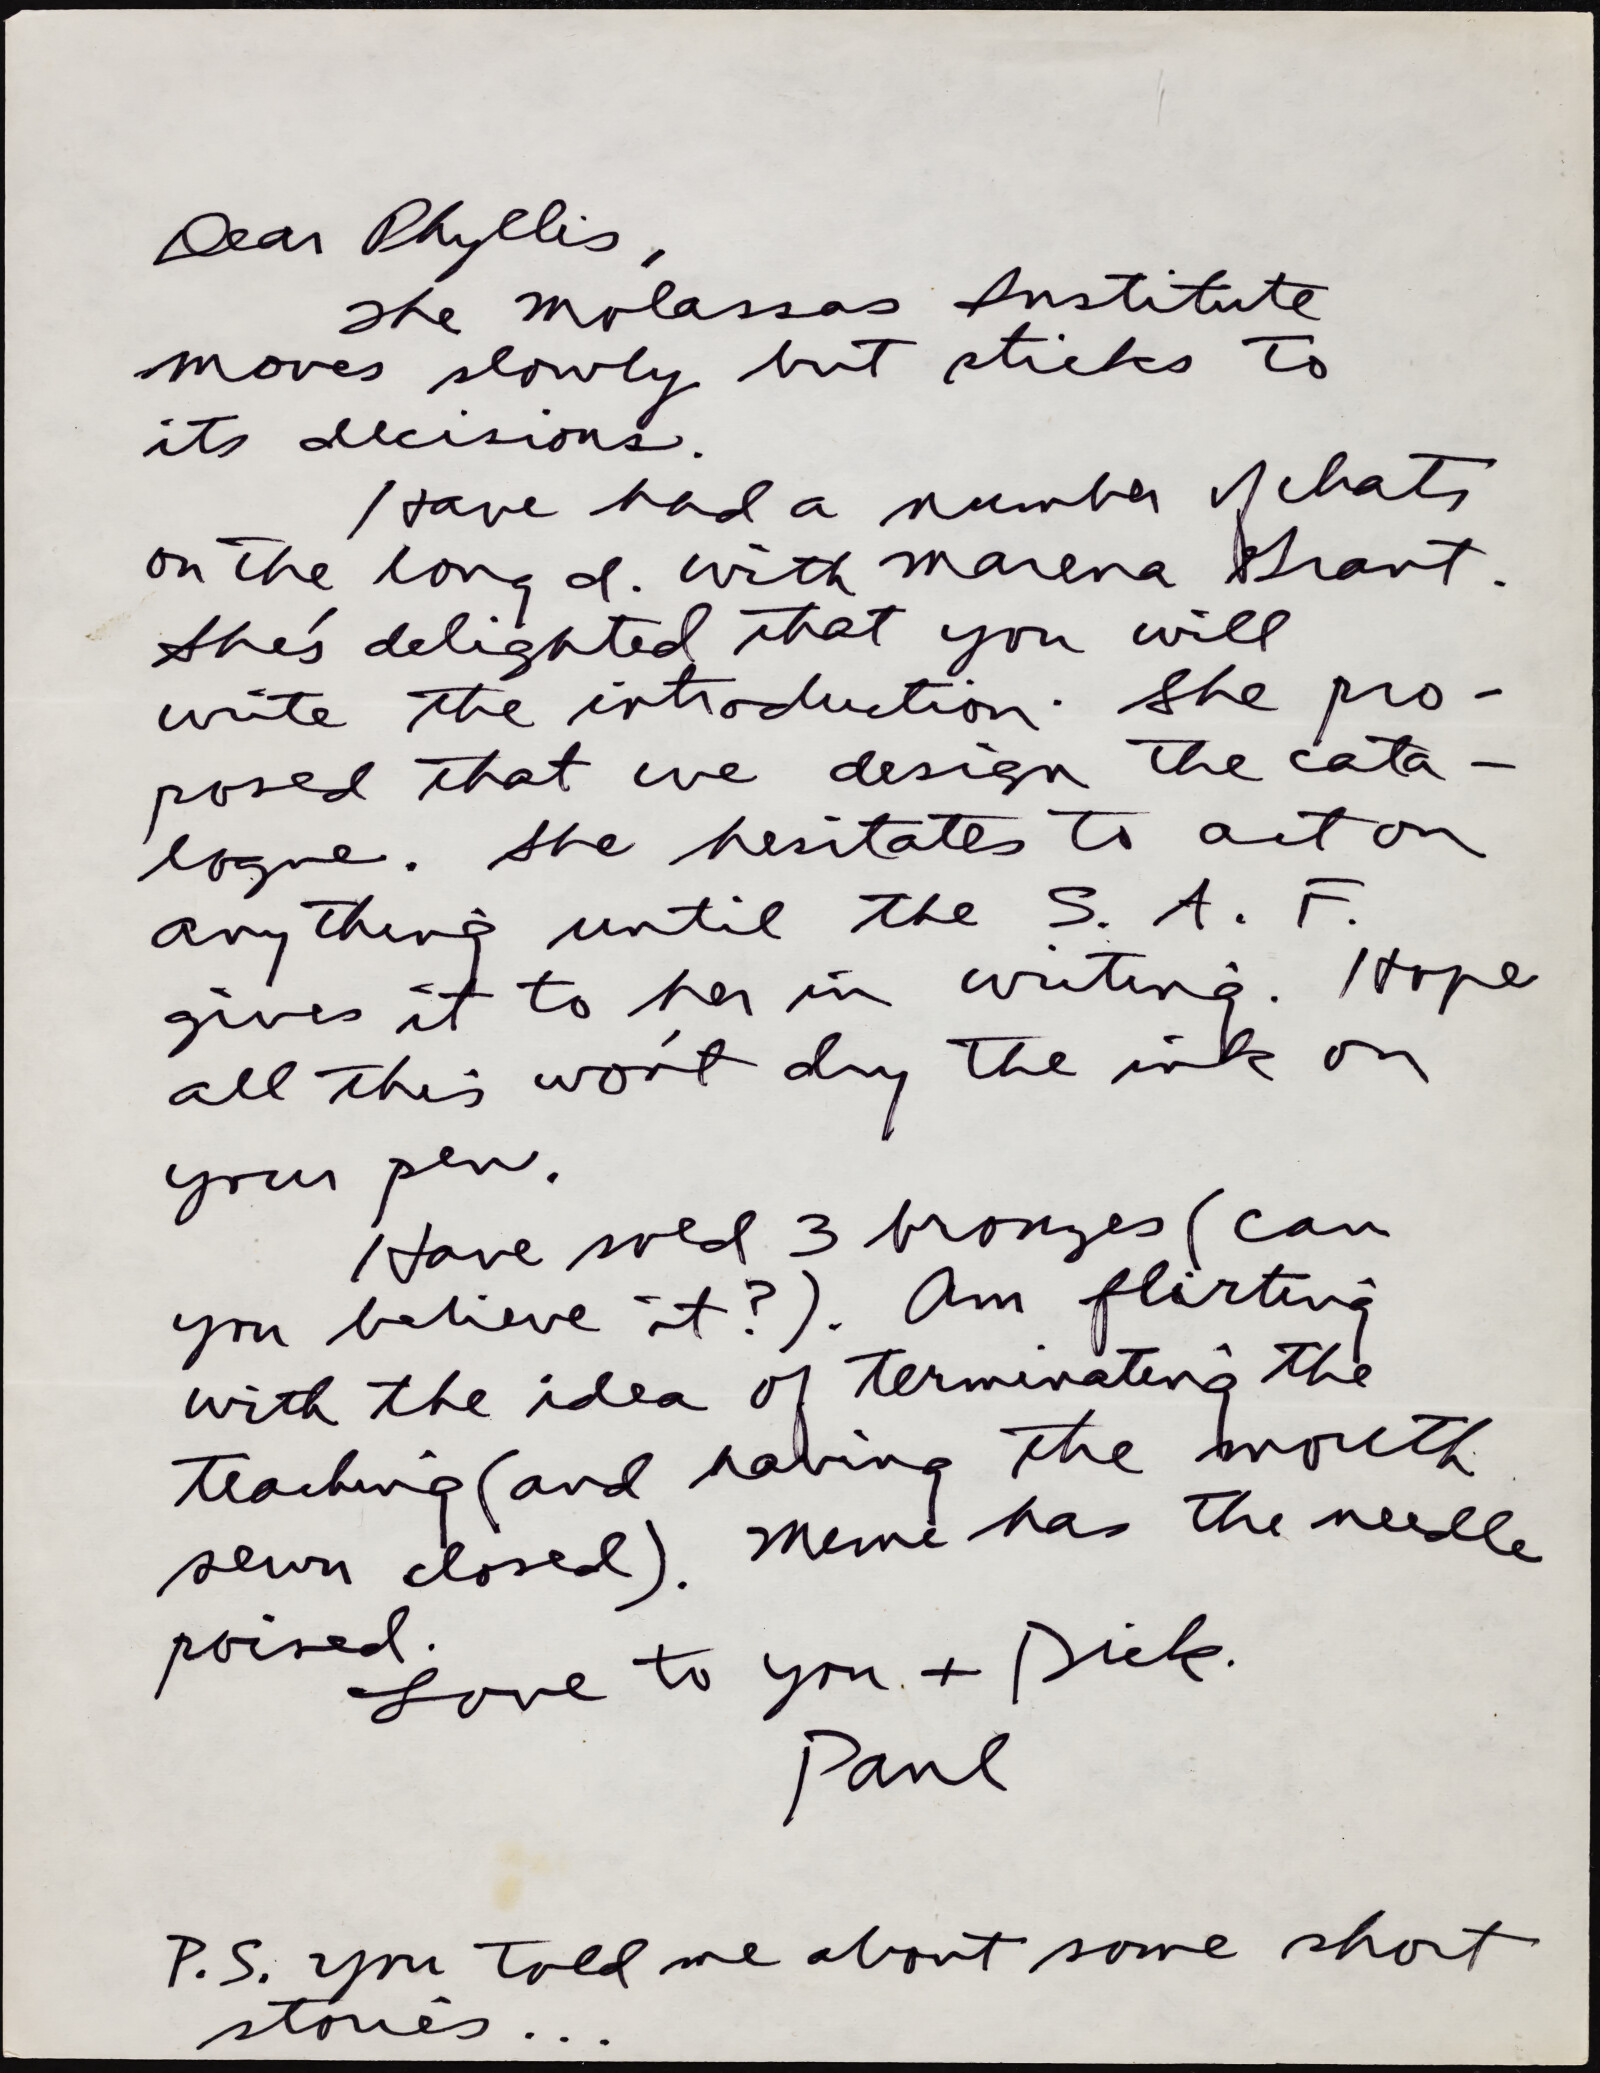 Dear Phyllis,
The Molassas Institute
moves slowly but sticks to
its decisions.
Have had a number of chats
on the long d. with Marena Grant.
She's delighted that you will
write the introduction. She pro-
posed that we design the cata-
logue. She hesitates to act on
anything until the S. A. F.
gives it to her in writing. Hope
all this won't dry the ink on
your pen.
Have sold 3 bronzes (can
you believe it?). Am flirting
with the idea of terminating the
teaching (and having the mouth
sewn closed). Meme has the needle
poised.
Love to you + Dick.
Paul
P.S. You told me about some short
stories...